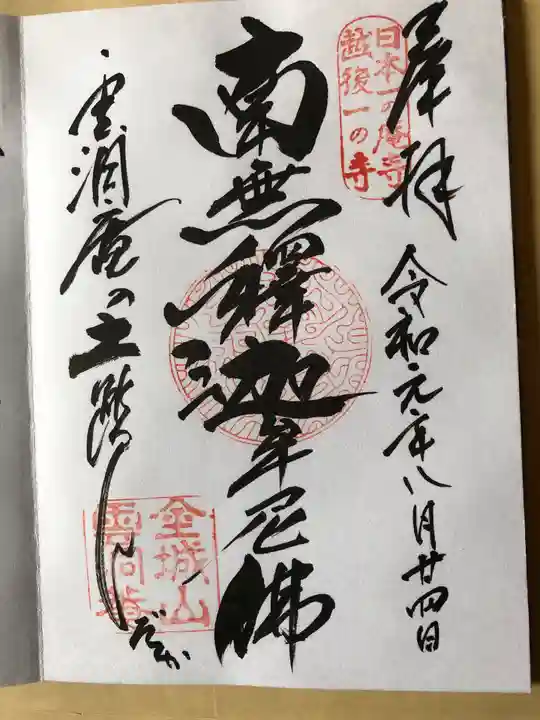 奉拝
日本一の庵寺
越後一の寺
令和元年八月廿四日
南無釋迦牟尼佛
雲洞庵の土踏し
金城山
雲洞庵